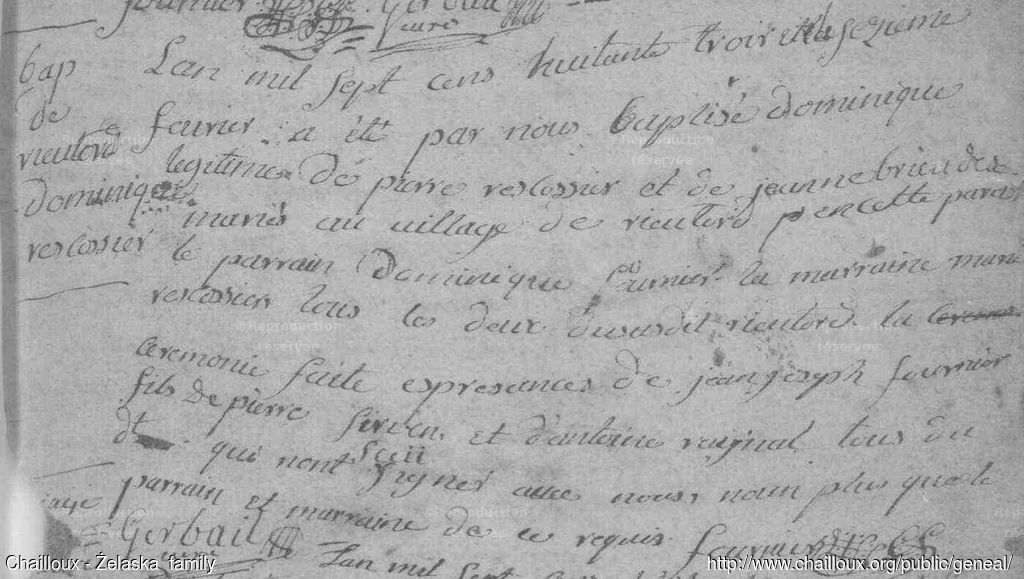 fournier Gerbail
curé
bap Lan mil sept cens huitante trois et le sezieme
de fevrier a été par nous baptisé dominique
rieutord legitime de pierre rescossier et de jeanne brieudes
dominique mariés au village de rieutord p en cette parois
rescossier le parrain Dominique fournier la marraine marie
rescossier tous les deux dususdit rieutord la
ceremonie faite espresances de jean joseph fournier
fils de pierre sirven et d'antoine raynal tous du
dt qui nont sceu signer avec nous, nomn plus que le
parrain et marraine de ce requis fournier
Gerbail
curé Lan mil sept
©Reproduction réservée
Chailloux - Żelaska family
http://www.chailloux.org/public/geneal/